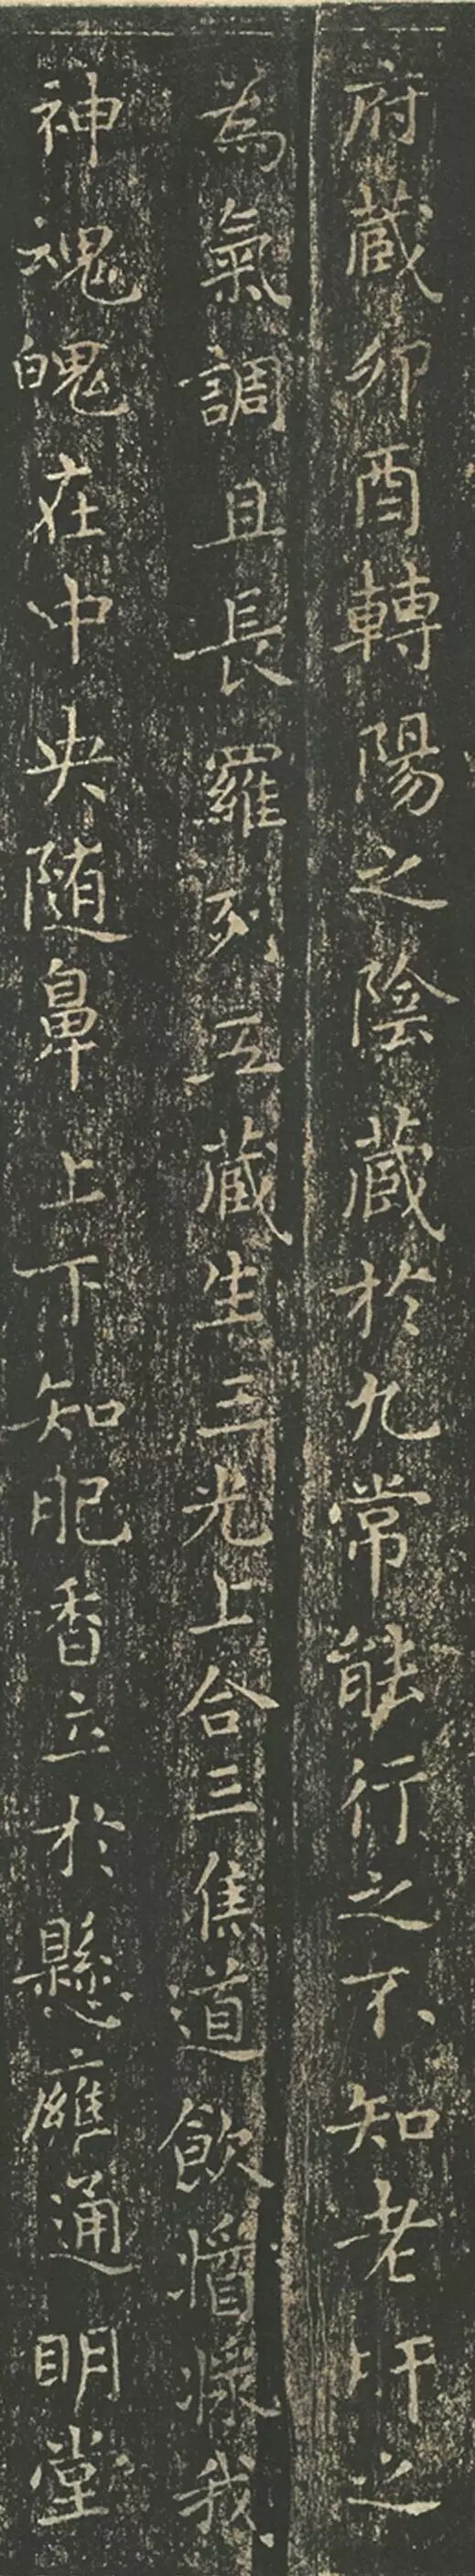 府藏卯酉轉陽之陰藏於九常能行之不知老肝之
為氣調且長羅列五藏生三光上合三焦道飲漿我
神魂魄在中央随鼻上下知肥香立於懸癕通明堂